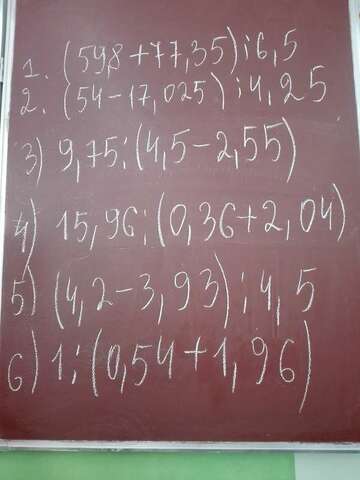 1. (59,8+77,35):6,5
2. (54-17,025):4,25
3) 9,75:(4,5-2,55)
4) 15,96:(0,36+2,04)
5) (4,2-3,93):4,5
6) 1:(0,54+1,96)